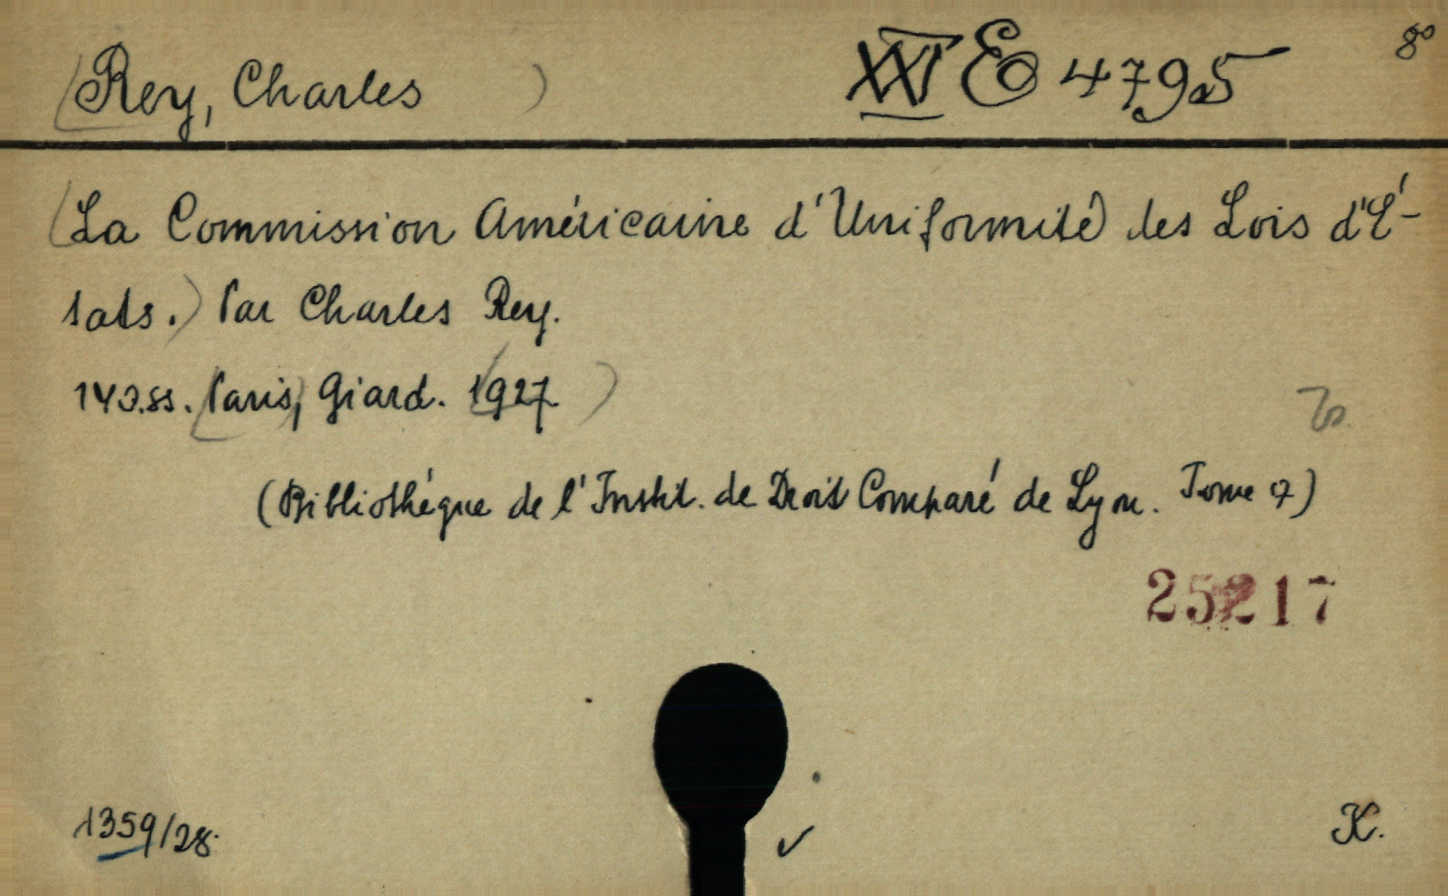 Rey, Charles XXI E 4795 8°
La Commission Américaine d'Uniformité des Lois d'É-
tats. Par Charles Rey.
140.ss. Paris, Giard. 1927
(Bibliothéque de l'Instit. de Droit Comparé de Lyon. Tome 7)
25217
1359/28.
K.